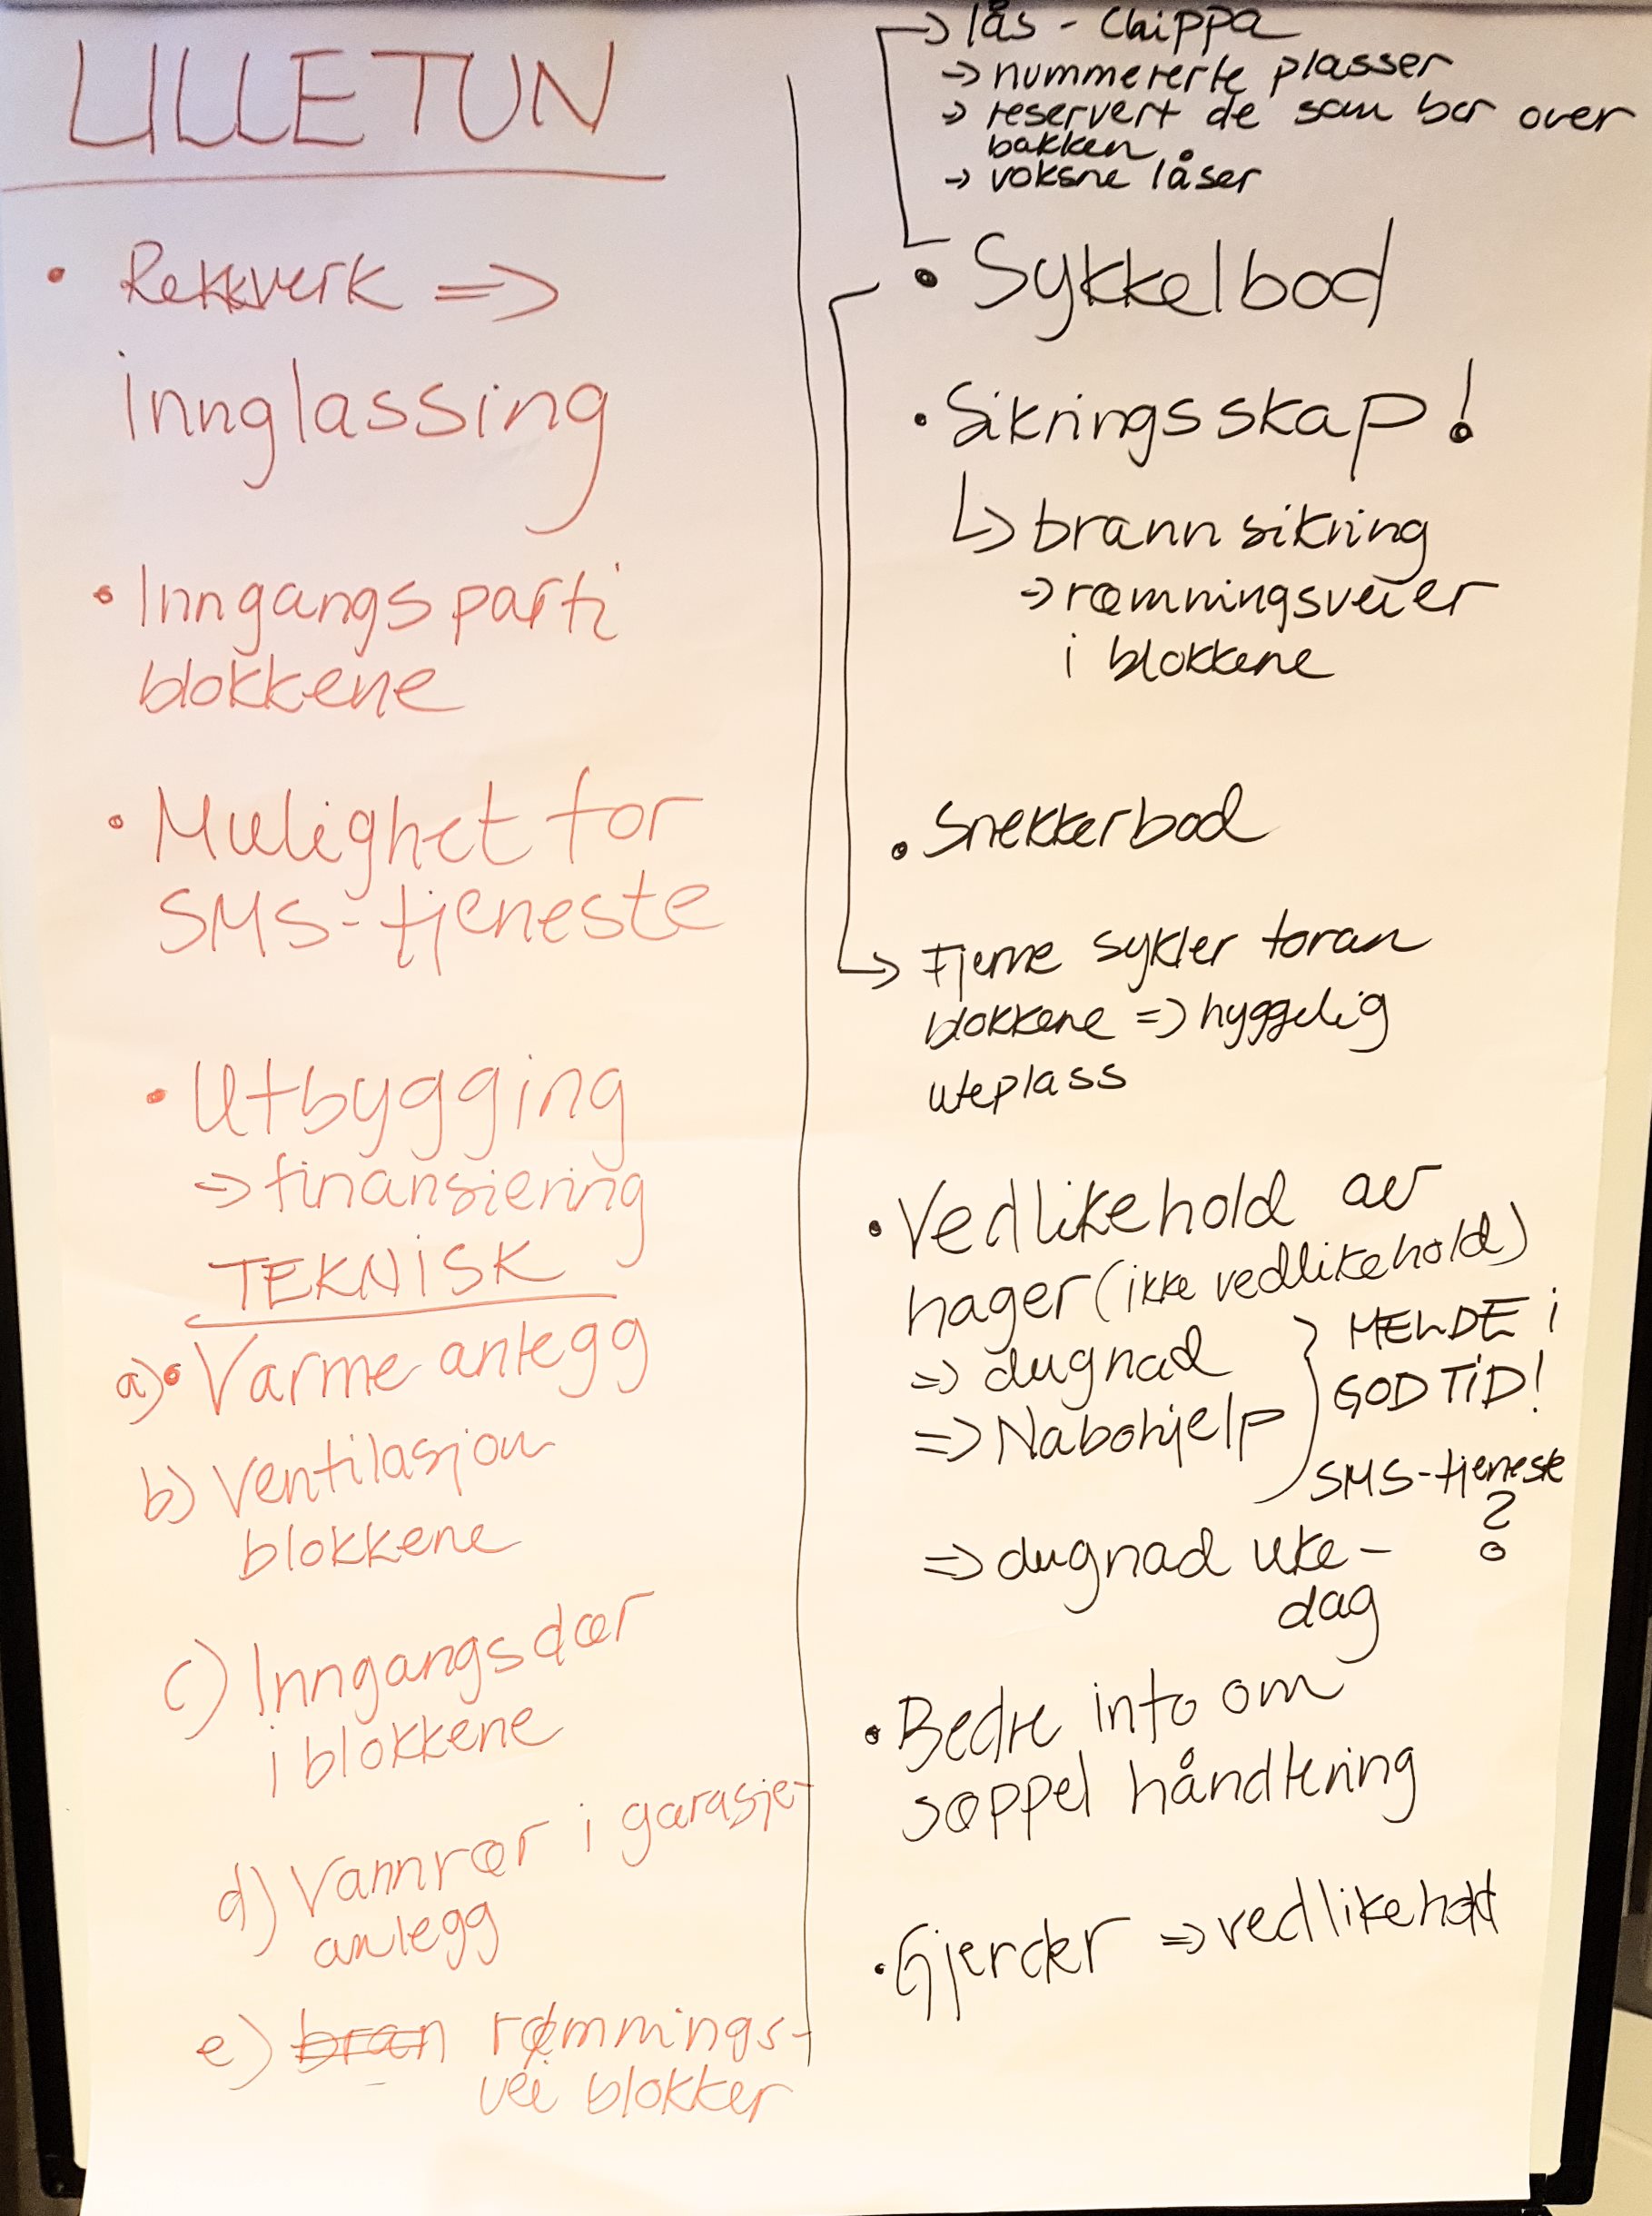 LILLETUN
• Rekkverk =>
innglassing
• Inngangsparti
blokkene
• Mulighet for
SMS-tjeneste
• Utbygging
=> finansiering
TEKNISK
a) • Varmeanlegg
b) Ventilasjon
blokkene
c) Inngangsdør
i blokkene
d) Vannrør i garasje-
anlegg
e) bran rømnings-
vei blokker
-> lås - Chippa
-> nummererte plasser
-> reservert de som bor over
bakken
-> voksne låser
• Sykkelbod
• Sikringsskap!
↳ brannsikring
-> rømningsveier
i blokkene
• Snekkerbod
-> Fjerne sykler foran
blokkene => hyggelig
uteplass
• Vedlikehold av
hager (ikke vedlikehold)
=> dugnad } MELDE i
=> Nabohjelp GOD TiD!
SMS-tjeneste
?
=> dugnad uke-
dag
• Bedre info om
søppel håndtering
• Gjerder => vedlikehold